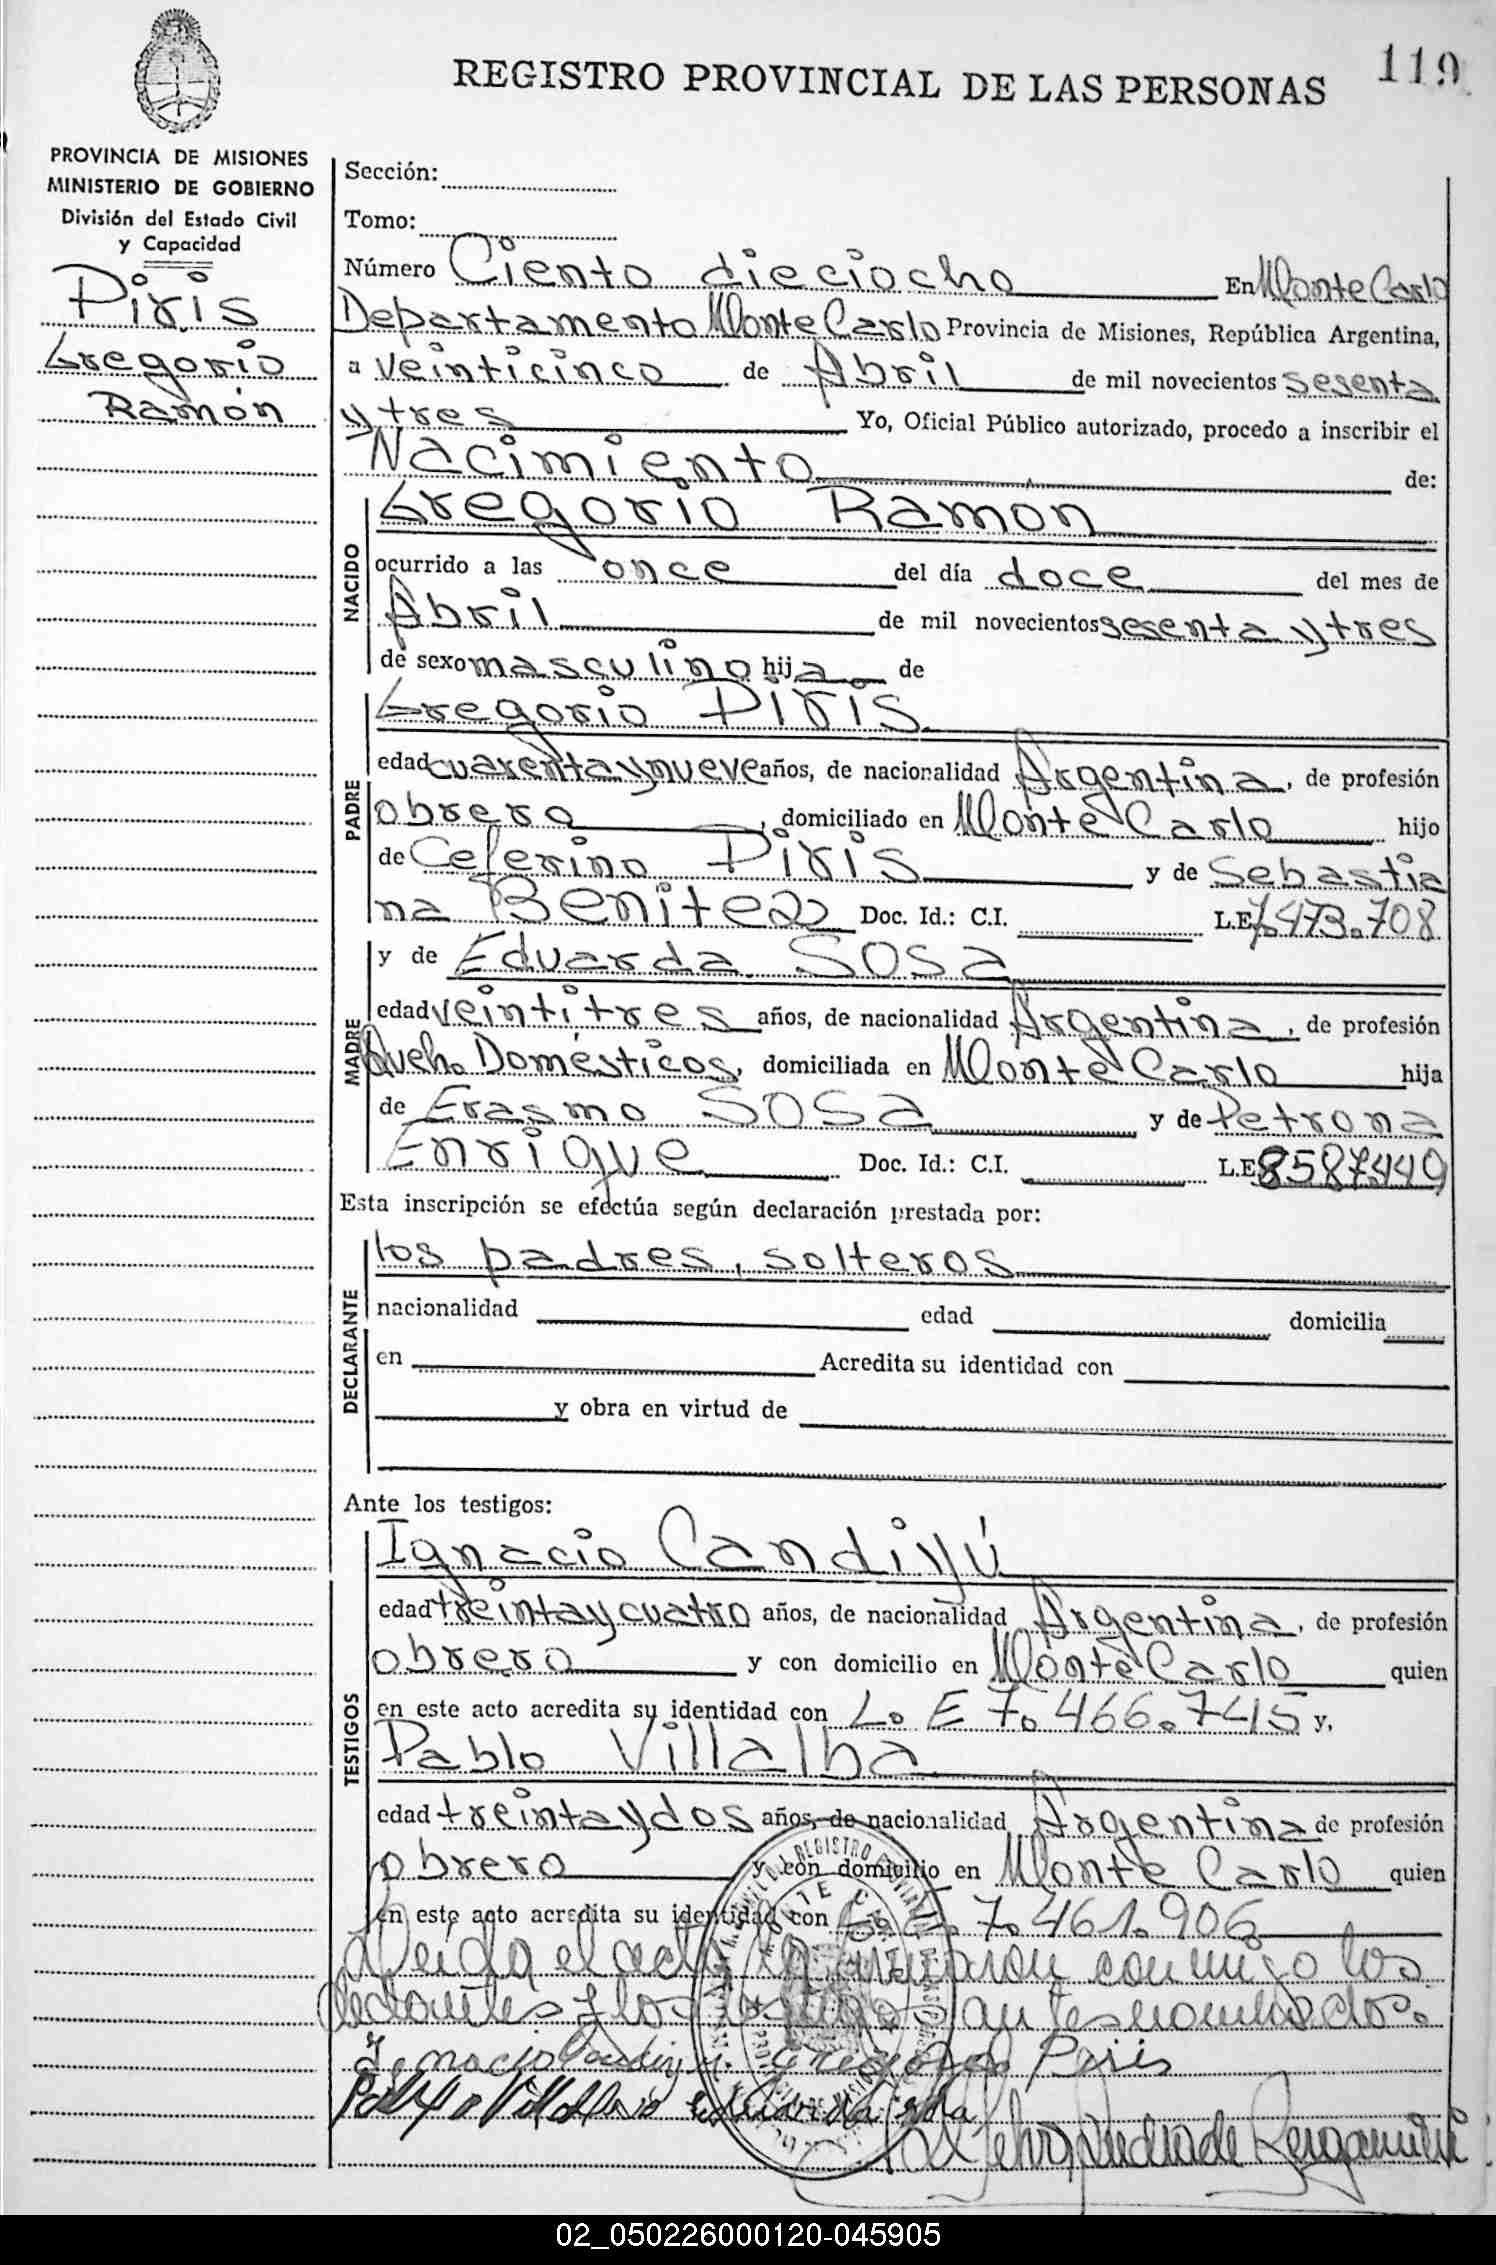 REGISTRO PROVINCIAL DE LAS PERSONAS
119
PROVINCIA DE MISIONES
MINISTERIO DE GOBIERNO
División del Estado Civil
y Capacidad
Piris
Gregorio
Ramón
Sección:
Tomo:
Número Ciento dieciocho En Monte Carlo
Departamento Monte Carlo Provincia de Misiones, República Argentina,
a veinticinco de Abril de mil novecientos sesenta
y tres Yo, Oficial Público autorizado, procedo a inscribir el
Nacimiento de:
NACIDO
Gregorio Ramon
ocurrido a las once del día doce del mes de
Abril de mil novecientos sesenta y tres
de sexo masculino hija de
PADRE
Gregorio Piris
edad cuarenta y nueve años, de nacionalidad Argentina, de profesión
obrero, domiciliado en Monte Carlo hijo
de Ceferino Piris y de Sebastia
na Benitez Doc. Id.: C.I. L.E. 7.473.708
MADRE
y de Eduarda Sosa
edad veintitres años, de nacionalidad Argentina, de profesión
Queh. Domésticos, domiciliada en Monte Carlo hija
de Erasmo Sosa y de Petrona
Enrique Doc. Id.: C.I. L.E. 8587449
Esta inscripción se efectúa según declaración prestada por:
DECLARANTE
los padres, solteros
nacionalidad edad domicilia
en Acredita su identidad con
y obra en virtud de
Ante los testigos:
TESTIGOS
Ignacio Candiyú
edad treinta y cuatro años, de nacionalidad Argentina, de profesión
obrero y con domicilio en Monte Carlo quien
en este acto acredita su identidad con L. E 7.466.745 y,
Pablo Villalba
edad treinta y dos años, de nacionalidad Argentina de profesión
obrero y con domicilio en Monte Carlo quien
en este acto acredita su identidad con 7.461.906
Leida el acta la firman conmigo los
declarantes y los testigos antes nombrados.
Ignacio Candiyú. Gregorio Piris
Pablo Villalba Eduarda Sosa
02_050226000120-045905